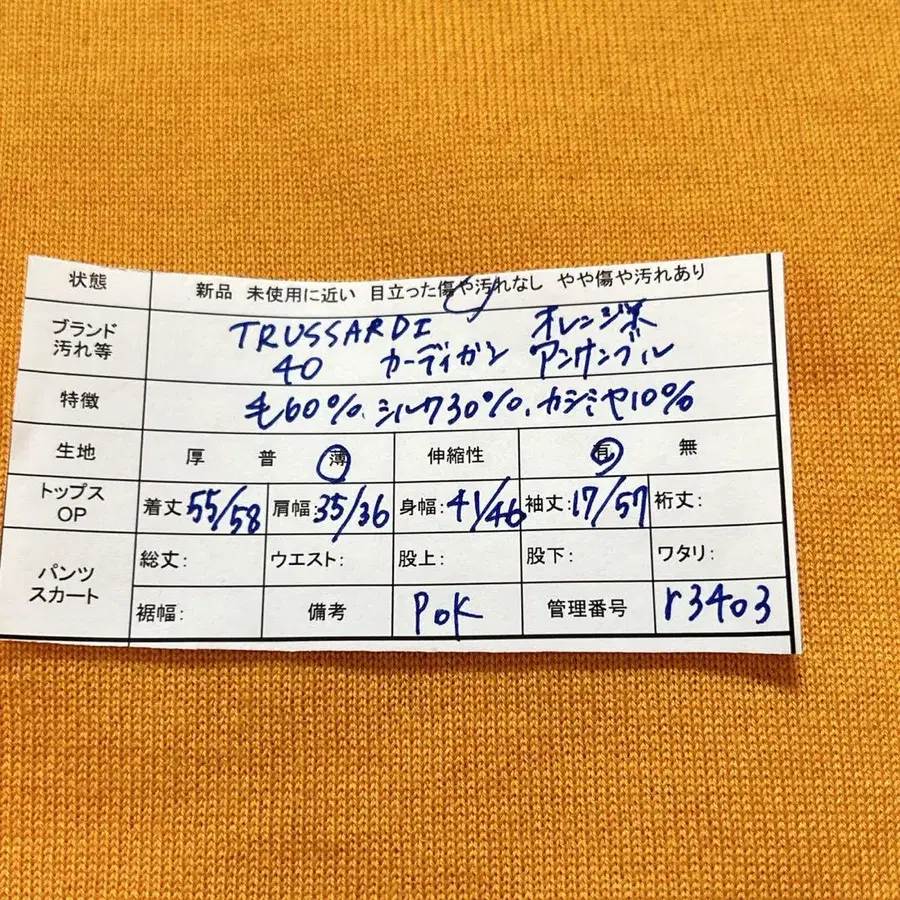 状態 新品 未使用に近い 目立った傷や汚れなし やや傷や汚れあり
ブランド TRUSSARDI オレンジ系
汚れ等 40 カーディガン アンサンブル
特徴 毛60%、シルク30%、カシミヤ10%
生地 厚 普 薄 伸縮性 有 無
トップス OP 着丈55/58 肩幅:35/36 身幅:41/46 袖丈:17/57 裄丈:
パンツ スカート 総丈: ウエスト: 股上: 股下: ワタリ:
裾幅: 備考 POK 管理番号 r3403